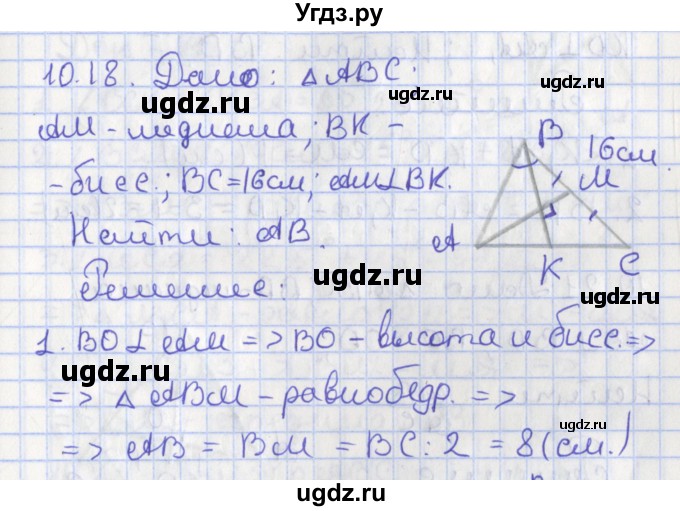 Угдз.ру
10.18. Дано: △ ABC.
ugdz.ru
ugdz.ru
AM - медиана; BK -
B
16см
- бисс.; BC=16см; AM⊥BK.
M
Найти: AB.
A
ugdz.ru
K
C
Решение:
ugdz.ru
1. BO⊥AM => BO - высота и бисс. =>
ugdz.ru
=> △ ABM - равнобедр. =>
ugdz.ru
=> AB = BM = BC:2 = 8(см.)
ugdz.ru
ugdz.ru